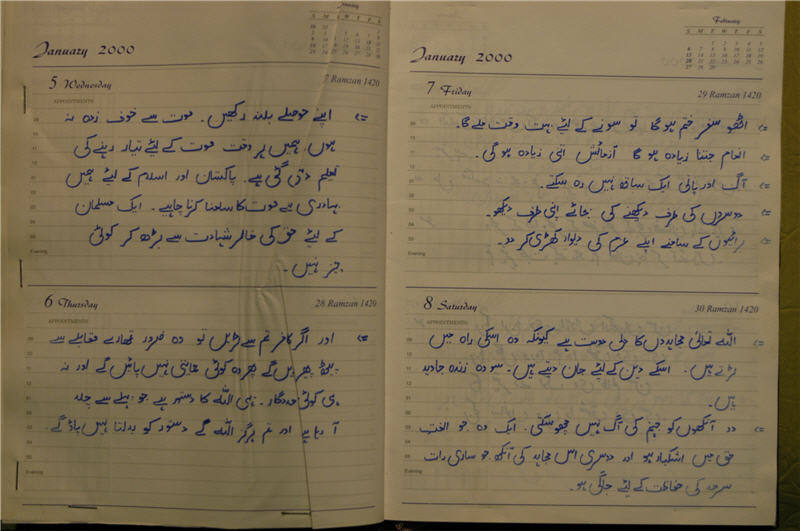 January 2000
5 Wednesday
27 Ramzan 1420
APPOINTMENTS
اپنے حوصلے بلند رکھیں۔ موت سے خوف زدہ نہ
ہوں ہمیں ہر وقت موت کے لیئے تیار رہنے کی
تعلیم دی گئی ہے۔ پاکستان اور اسلام کے لیئے ہمیں
بہادری سے موت کا سامنا کرنا چاہیے۔ ایک مسلمان
کے لیئے حق کی خاطر شہادت سے بڑھ کر کوئی
چیز نہیں۔
Evening
6 Thursday
28 Ramzan 1420
APPOINTMENTS
اور اگر کافر تم سے لڑیں تو وہ ضرور تمھارے مقابلے سے
پیٹھ پھیریں گے پھر وہ کوئی حمایتی نہیں پائیں گے اور نہ
ہی کوئی مددگار۔ یہی اللہ کا دستور ہے جو پہلے سے چلا
آ رہا ہے اور تم ہرگز اللہ کے دستور کو بدلتا نہیں پاؤ گے۔
Evening
January 2000
February
S M T W T F S
7 Friday
29 Ramzan 1420
APPOINTMENTS
اٹھو سفر ختم ہو گا تو سونے کے لیئے بہت وقت ملے گا۔
انعام جتنا زیادہ ہو گا آزمائش اتنی زیادہ ہو گی۔
آگ اور پانی ایک ساتھ نہیں رہ سکتے۔
دوسروں کی طرف دیکھنے کی بجائے اپنی طرف دیکھو۔
برائیوں کے سامنے اپنے عزم کی دیوار کھڑی کر دو۔
Evening
8 Saturday
30 Ramzan 1420
APPOINTMENTS
اللہ تعالیٰ مجاہدوں کا دلی دوست ہے کیونکہ وہ اسکی راہ میں
لڑتے ہیں۔ اسکے دین کے لیئے جان دیتے ہیں۔ سو وہ زندہ جاوید
ہیں۔
دو آنکھوں کو جہنم کی آگ نہیں چھو سکتی۔ ایک وہ جو الفت
حق میں اشکبار ہو اور دوسری اس مجاہد کی آنکھ جو ساری رات
سرحد کی حفاظت کے لیئے جاگی ہو۔
Evening